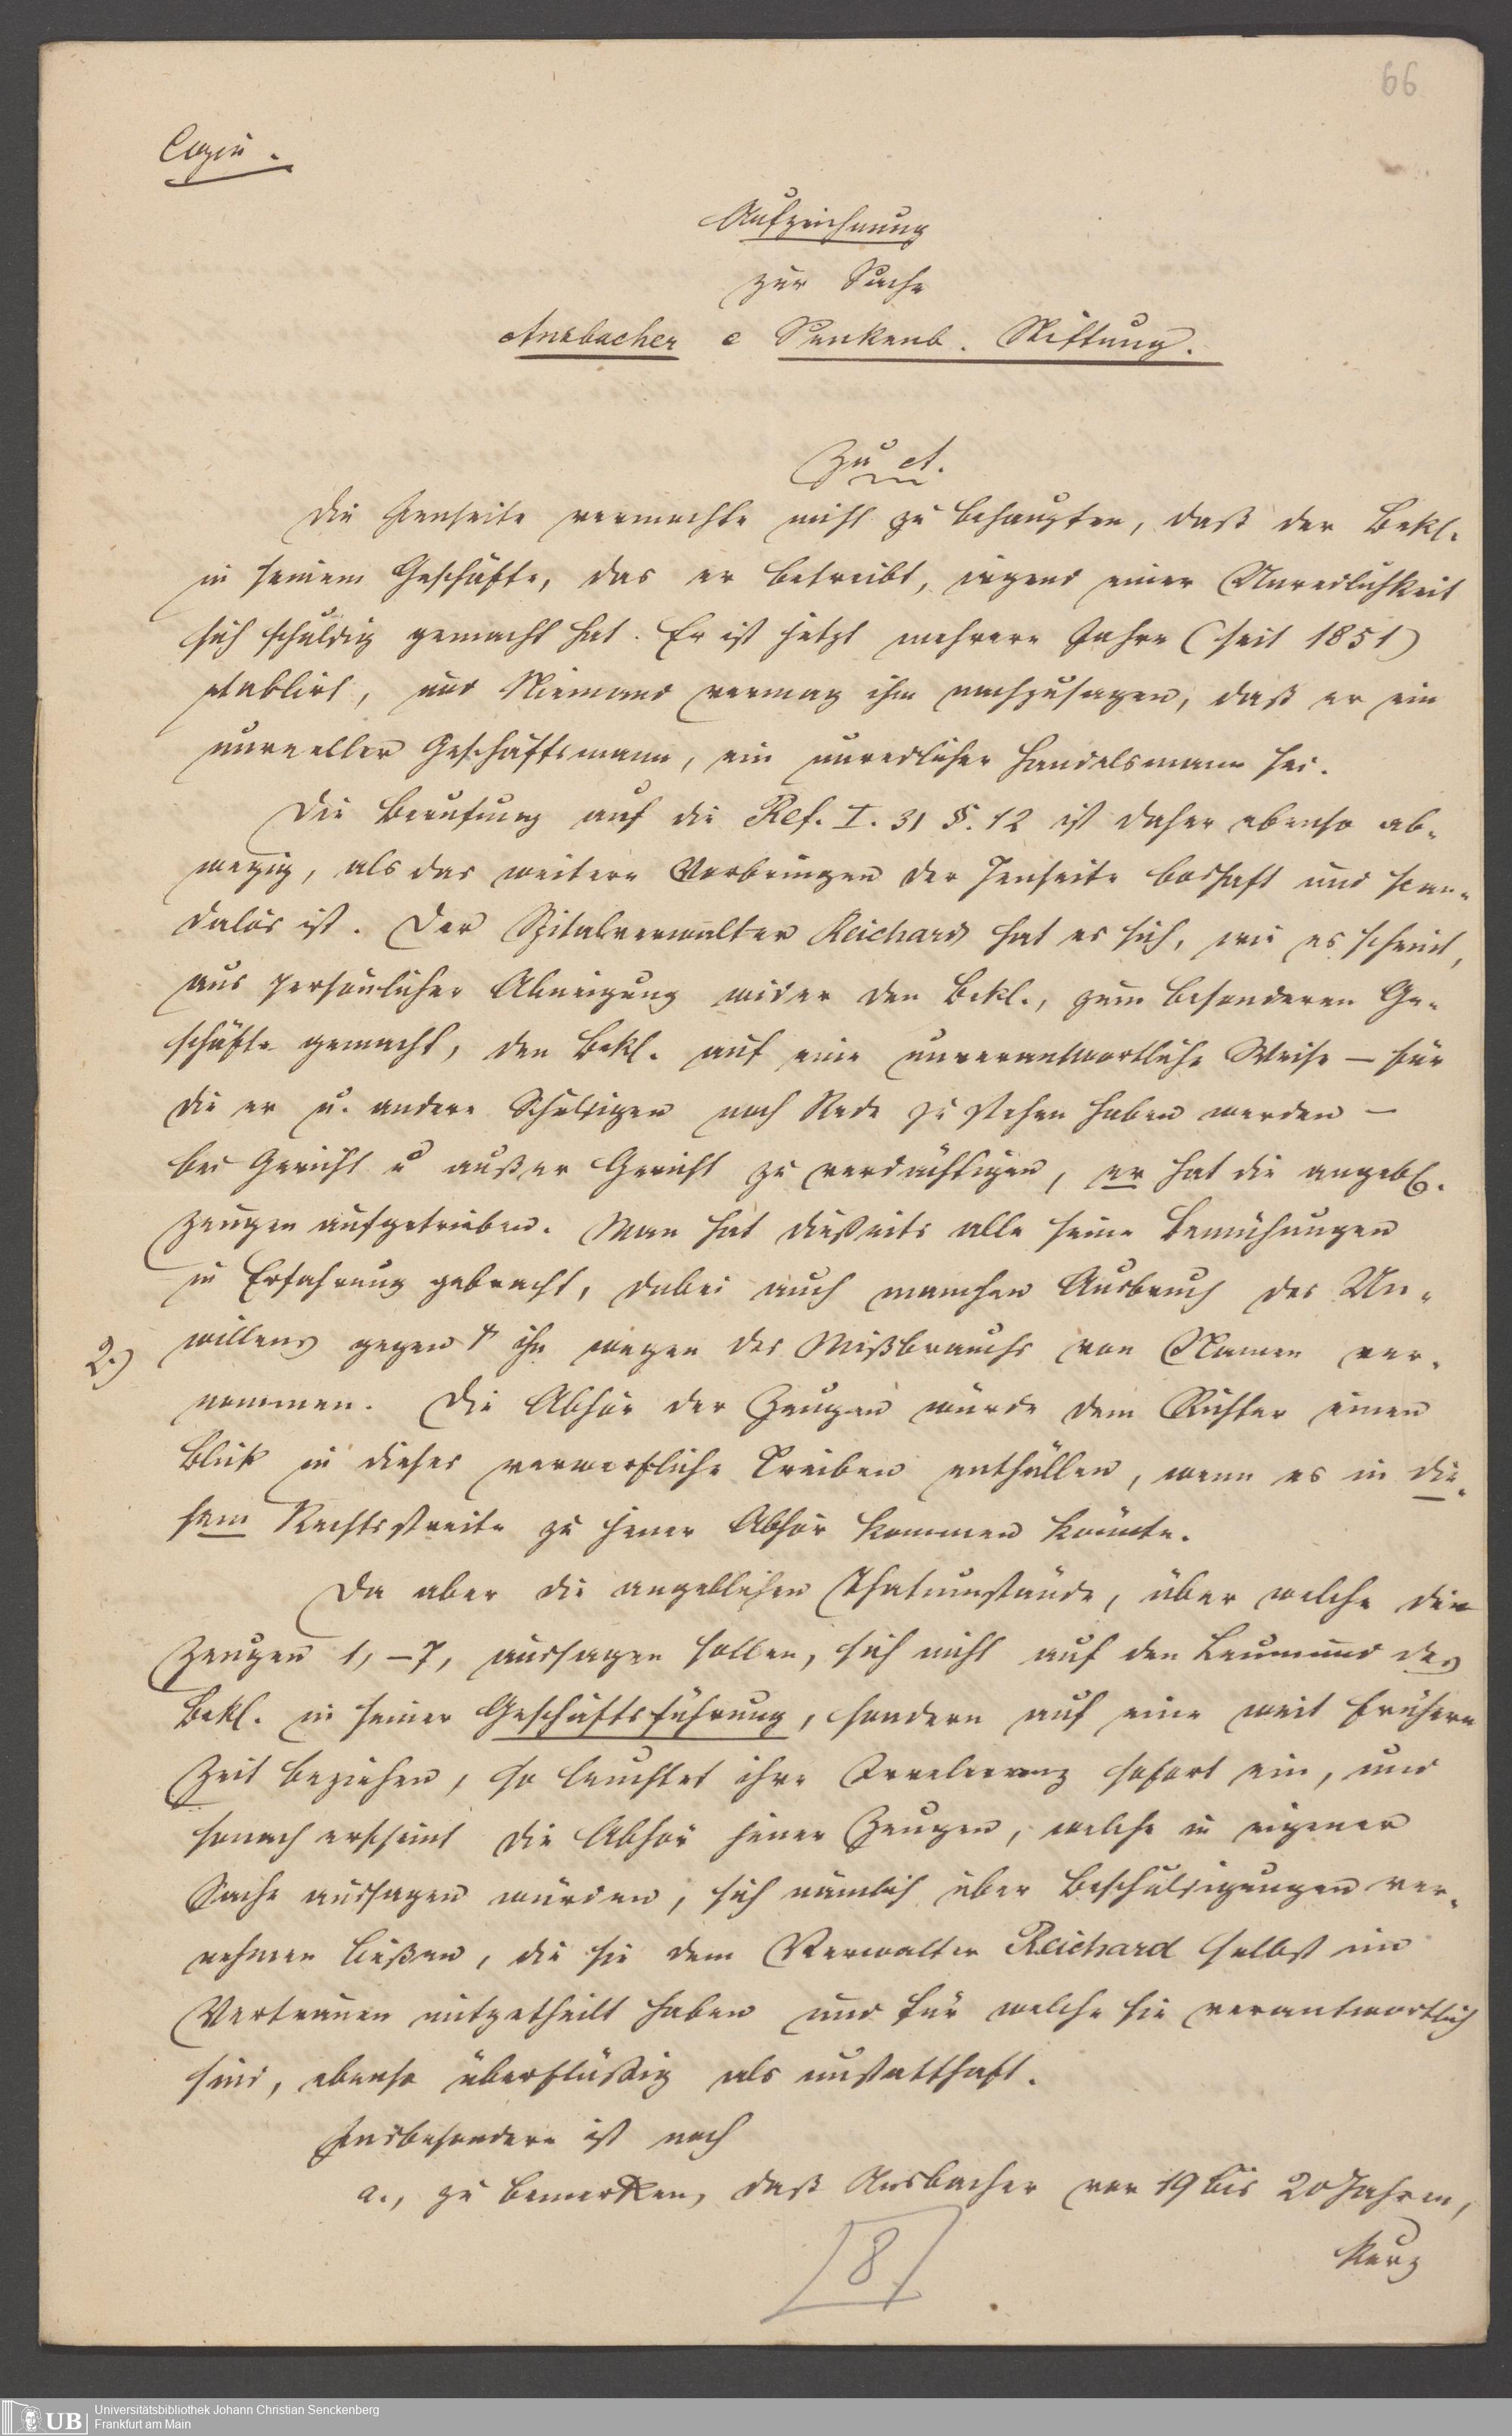 66
Copia.
Aufzeichnung
zur Sache
Ansbacher c Senkenb. Stiftung.
Zu A.
Die Jenseite vermochte nicht zu behaupten, daß der Bekl.
in seinem Geschäfte, das er betreibt, irgend einer Unredlichkeit
sich schuldig gemacht hat. Er ist jetzt mehrere Jahre (seit 1851)
etablirt, und Niemand vermag ihm nachzusagen, daß er ein
unreeller Geschäftsmann, ein unredlicher Handelsmann sei.
Die Berufung auf die Ref. I. 31 §. 12 ist daher ebenso ab-
wegig, als das weitere Vorbringen der Jenseite boshaft und scan-
dalös ist. Der Spitalverwalter Reichard hat es sich, wie es scheint,
aus persönlicher Abneigung wider den Bekl., zum besonderen Ge-
schäfte gemacht, den Bekl. auf eine unverantwortliche Weise – für
die er u. andere Schuldigen noch Rede zu stehen haben werden –
bei Gericht u außer Gericht zu verdächtigen, er hat die angebl.
Zeugen aufgetrieben. Man hat dießeits alle seine Bemühungen
in Erfahrung gebracht, dabei auch manchen Ausbruch des Un-
2.) willens gegen ihn wegen des Mißbrauchs von Namen ver-
nommen. Die Abhör der Zeugen würde dem Richter einen
Blick in dieses verwerfliche Treiben enthüllen, wenn es in die-
sem Rechtsstreite zu jener Abhör kommen könnte.
Da aber die angeblichen Thatumstände, über welche die
Zeugen 1, –7, aussagen sollen, sich nicht auf den Leumund des
Bekl. in seiner Geschäftsführung, sondern auf eine weit frühere
Zeit beziehen, so leuchtet ihre Irrelevanz sofort ein, und
sonach erscheint die Abhör jener Zeugen, welche in eigener
Sache aussagen würden, sich nämlich über Beschuldigungen ver-
nehmen ließen, die sie dem Verwalter Reichard selbst im
Vertrauen mitgetheilt haben und für welche sie verantwortlich
sind, ebenso überflüßig als unstatthaft.
Insbesondere ist noch
a., zu bemerken, daß Ansbacher vor 19 bis 20 Jahren,
kurz
8
UB Universitätsbibliothek Johann Christian Senckenberg
Frankfurt am Main